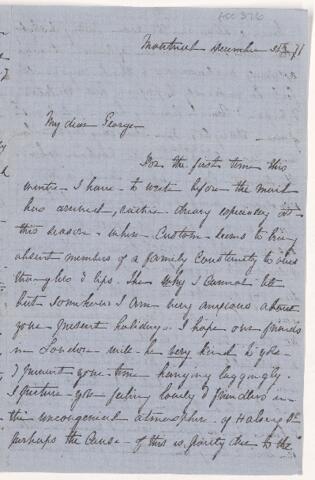 Montreal December 31st /71
My dear George
For the first time this
winter I have to write before the mail
has arrived, rather dreary especially at
this season when Custom seems to bring
absent members of a family constantly to one's
thoughts & lips. The Why I cannot tell
but somehow I am very anxious about
your present holidays. I hope our friends
in London will be very kind to you
I picture your time hanging laggingly.
I picture you feeling lonely & friendless in
the uncongenial atmosphere of
perhaps the cause of this is partly due to the